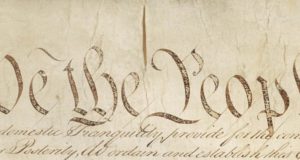 We the Peopl
domestic Tranquility, provide for the com
Posterity, do ordain and establish this